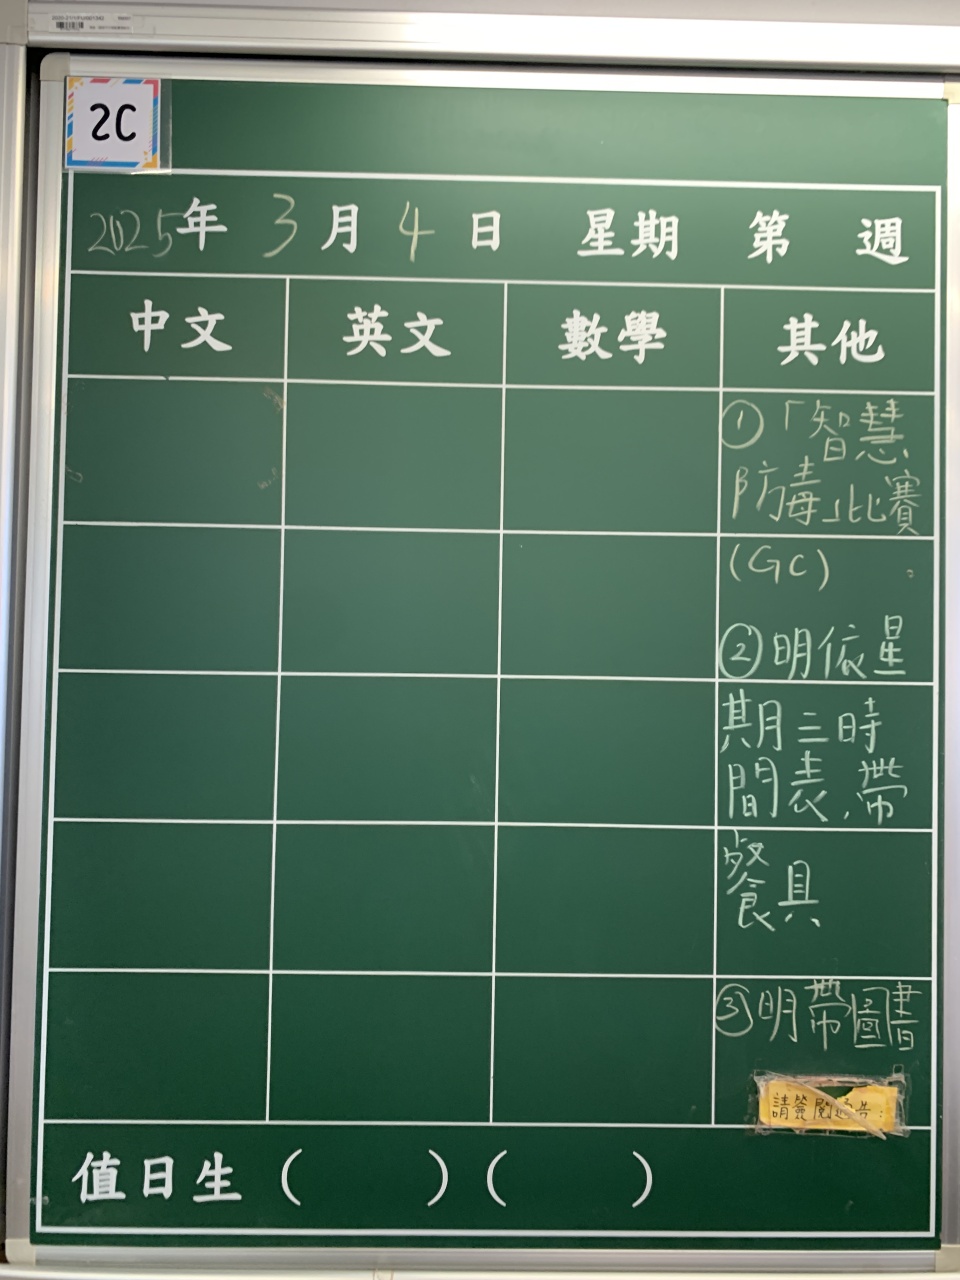 2C
2025年 3月 4日 星期 第 週
中文 英文 數學 其他
①「智慧
防毒」比賽
(GC)
②明依星
期三時
間表,帶
餐具
③明帶圖書
請簽閱通告:
值日生 ( ) ( )